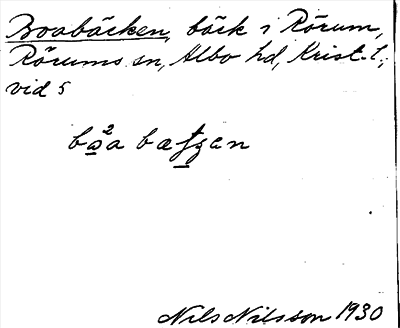 Boabäcken, bäck i Rörum,
Rörums sn, Albo hd, Krist. l.,
vid 5
Nils Nilsson 1930